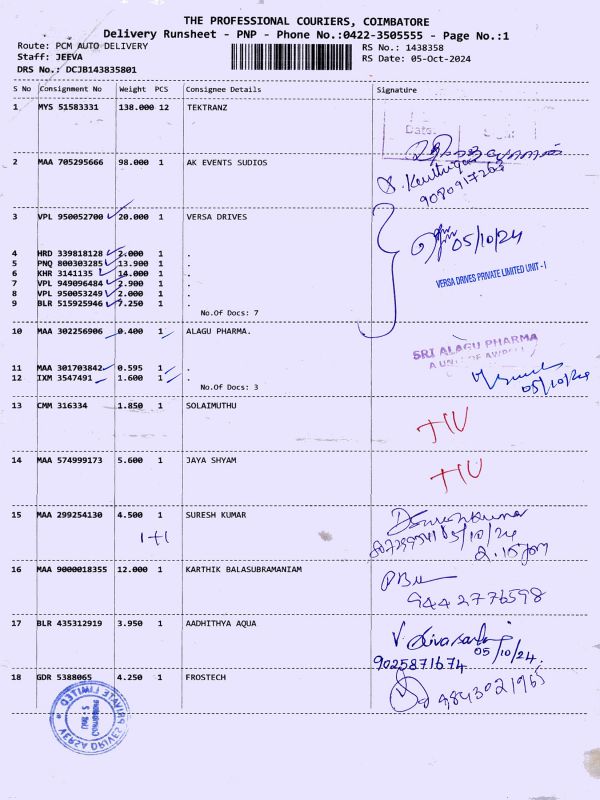 THE PROFESSIONAL COURIERS, COIMBATORE
Delivery Runsheet - PNP - Phone No.:0422-3505555 - Page No.:1
Route: PCM AUTO DELIVERY
RS No.: 1438358
Staff: JEEVA
RS Date: 05-Oct-2024
DRS No.: DCJB143835801
S No Consignment No Weight PCS Consignee Details Signature
1 MYS 51583331 138.000 12 TEKTRANZ
Date:
2 MAA 705295666 98.000 1 AK EVENTS SUDIOS
9080917263
3 VPL 950052700 20.000 1 VERSA DRIVES
05/10/24
4 HRD 339818128 2.000 1 .
5 PNQ 800303285 13.900 1 .
6 KHR 3141135 14.000 1 .
VERSA DRIVES PRIVATE LIMITED UNIT - I
7 VPL 949096484 2.900 1 .
8 VPL 950053249 2.000 1 .
9 BLR 515925946 7.250 1 .
No.Of Docs: 7
10 MAA 302256906 0.400 1 ALAGU PHARMA.
SRI ALAGU PHARMA
11 MAA 301703842 0.595 1 .
12 IXM 3547491 1.600 1 .
05/10/24
No.Of Docs: 3
13 CMM 316334 1.850 1 SOLAIMUTHU
14 MAA 574999173 5.600 1 JAYA SHYAM
15 MAA 299254130 4.500 1 SURESH KUMAR
1+1
5/10/24
2.15pm
16 MAA 9000018355 12.000 1 KARTHIK BALASUBRAMANIAM
944 2776598
17 BLR 435312919 3.950 1 AADHITHYA AQUA
05/10/24
9025871674
18 GDR 5388065 4.250 1 FROSTECH
9843021965